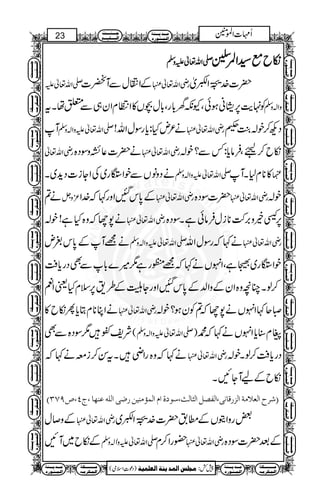 23
اُمہات المؤمنین
نکاح مع سید المرسلین صلی اللہ تعالیٰ علیہ وسلم
حضرت خدیجۃ الکبریٰ رضی اللہ تعالیٰ عنہا کے انتقال سے آنحضرت صلی اللہ تعالیٰ علیہ
والہ وسلم کو نہایت پریشانی ہوئی، کیونکہ گھر بار، بال بچوں کا انتظام ان ہی سے متعلق تھا۔ یہ
دیکھ کر خولہ بنت حکیم رضی اللہ تعالیٰ عنہا نے عرض کیا: یارسول اللہ! صلی اللہ تعالیٰ علیہ والہ وسلم آپ
نکاح کر لیجئے، فرمایا: کس سے؟ خولہ رضی اللہ تعالیٰ عنہا نے حضرت عائشہ و سودہ رضی اللہ تعالیٰ
عنہما کا نام لیا۔ آپ صلی اللہ تعالیٰ علیہ والہ وسلم نے دونوں سے خواستگاری کی اجازت دیدی۔
خولہ رضی اللہ تعالیٰ عنہا حضرت سودہ رضی اللہ تعالیٰ عنہا کے پاس گئیں اور کہا کہ خدا عزوجل نے تم
پر کیسی خیر و برکت نازل فرمائی ہے۔ سودہ رضی اللہ تعالیٰ عنہا نے پوچھا کہ وہ کیا ہے! خولہ
رضی اللہ تعالیٰ عنہا نے کہا کہ رسول اللہ صلی اللہ تعالیٰ علیہ والہ وسلم نے مجھے آپ کے پاس بغرض
خواستگاری بھیجا ہے، انہوں نے کہا کہ مجھے منظور ہے مگر میرے باپ سے بھی دریافت
کر لو۔ چنانچہ وہ ان کے والد کے پاس گئیں اور جاہلیت کے طریق پر سلام کیا یعنی انعم
صباحا کہا انہوں نے پوچھا کہ تم کون ہو؟ خولہ رضی اللہ تعالیٰ عنہا نے اپنا نام بتایا پھر نکاح کا
پیغام سنایا انہوں نے کہا کہ محمد (صلی اللہ تعالیٰ علیہ والہ وسلم) شریف کفو ہیں مگر سودہ سے بھی
دریافت کر لو۔ خولہ رضی اللہ تعالیٰ عنہا نے کہا کہ وہ راضی ہیں۔ یہ سن کر زمعہ نے کہا کہ
نکاح کے لئے آجائیں۔
(شرح العلامة الزرقانی،الفصل الثالث،سودة ام المؤمنین رضی اللہ عنها ،ج٤،ص٣٧٩)
بعض روایتوں کے مطابق حضرت خدیجۃ الکبریٰ رضی اللہ تعالیٰ عنہا کے وصال
کے بعد حضرت سودہ رضی اللہ تعالیٰ عنہا حضور اکرم صلی اللہ تعالیٰ علیہ والہ وسلم کے نکاح میں آئیں
پیش کش: مجلس المدینة العلمیة (دعوت اسلامی)